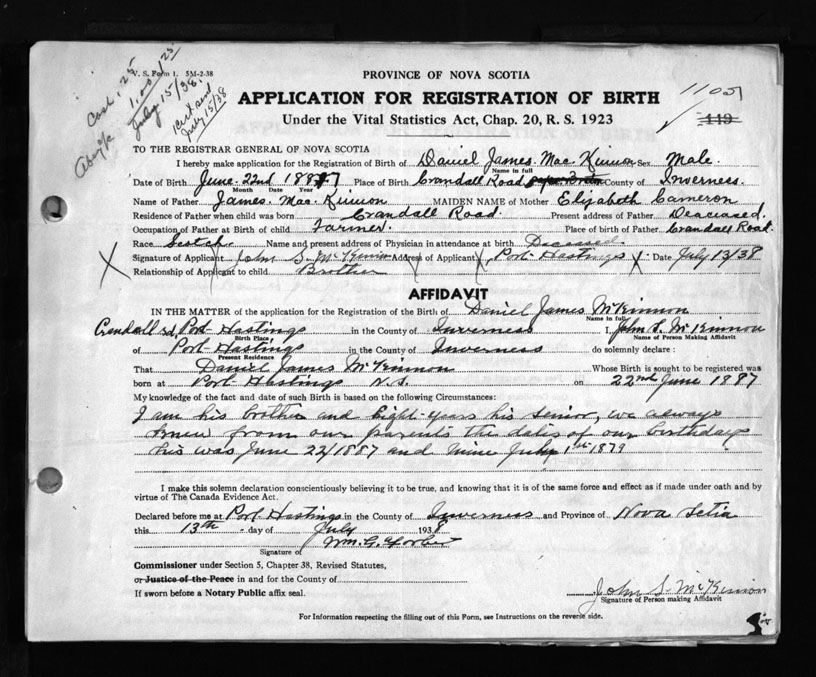 Cash .25
V. S. Form 1. 5M-2-38
1.00
July 15/38.
Cert. sent
July 15/38
PROVINCE OF NOVA SCOTIA
1105
APPLICATION FOR REGISTRATION OF BIRTH
Under the Vital Statistics Act, Chap. 20, R. S. 1923
119
TO THE REGISTRAR GENERAL OF NOVA SCOTIA
I hereby make application for the Registration of Birth of Daniel James Mac Kinnon Sex Male.
Name in full
Date of Birth June 22nd 1887 Place of Birth Crandall Road County of Inverness.
Month Date Year
Name of Father James Mac Kinnon MAIDEN NAME of Mother Elizabeth Cameron
Residence of Father when child was born Crandall Road. Present address of Father Deaceased.
Occupation of Father at Birth of child Farmer. Place of birth of Father Crandall Road.
Race Scotch. Name and present address of Physician in attendance at birth Deceased.
Signature of Applicant John S. McKinnon Address of Applicant Port Hastings Date July 13/38
Relationship of Applicant to child Brother
AFFIDAVIT
IN THE MATTER of the application for the Registration of the Birth of Daniel James McKinnon
Name in full
Crandall rd, Port Hastings in the County of Inverness I, John S. McKinnon
Birth Place Name of Person Making Affidavit
of Port Hastings in the County of Inverness do solemnly declare :
Present Residence
That Daniel James McKinnon Whose Birth is sought to be registered was
born at Port Hastings N.S. on 22nd June 1887
My knowledge of the fact and date of such Birth is based on the following Circumstances:
I am his brother and Eight years his senior, we always
knew from our parents the dates of our birthdays
his was June 22/1887 and mine July 1st 1879
I make this solemn declaration conscientiously believing it to be true, and knowing that it is of the same force and effect as if made under oath and by
virtue of The Canada Evidence Act.
Declared before me at Port Hastings in the County of Inverness and Province of Nova Scotia
this 13th day of July 1938
Wm. G.
Signature of
Commissioner under Section 5, Chapter 38, Revised Statutes,
or Justice of the Peace in and for the County of
If sworn before a Notary Public affix seal.
John S. McKinnon
Signature of Person making Affidavit
For Information respecting the filling out of this Form, see Instructions on the reverse side.